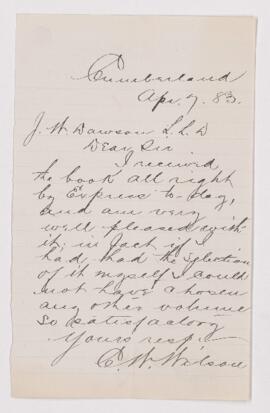 Cumberland
Apr. 7. 83.
J. W. Dawson L.L.D
Dear Sir
I received
the book all right
by Express to-day,
and am very
well pleased with
it; in fact if I
had had the selection
of it myself I could
not have chosen
any other volume
so satisfactory
Yours resp.
C. W. Wilson